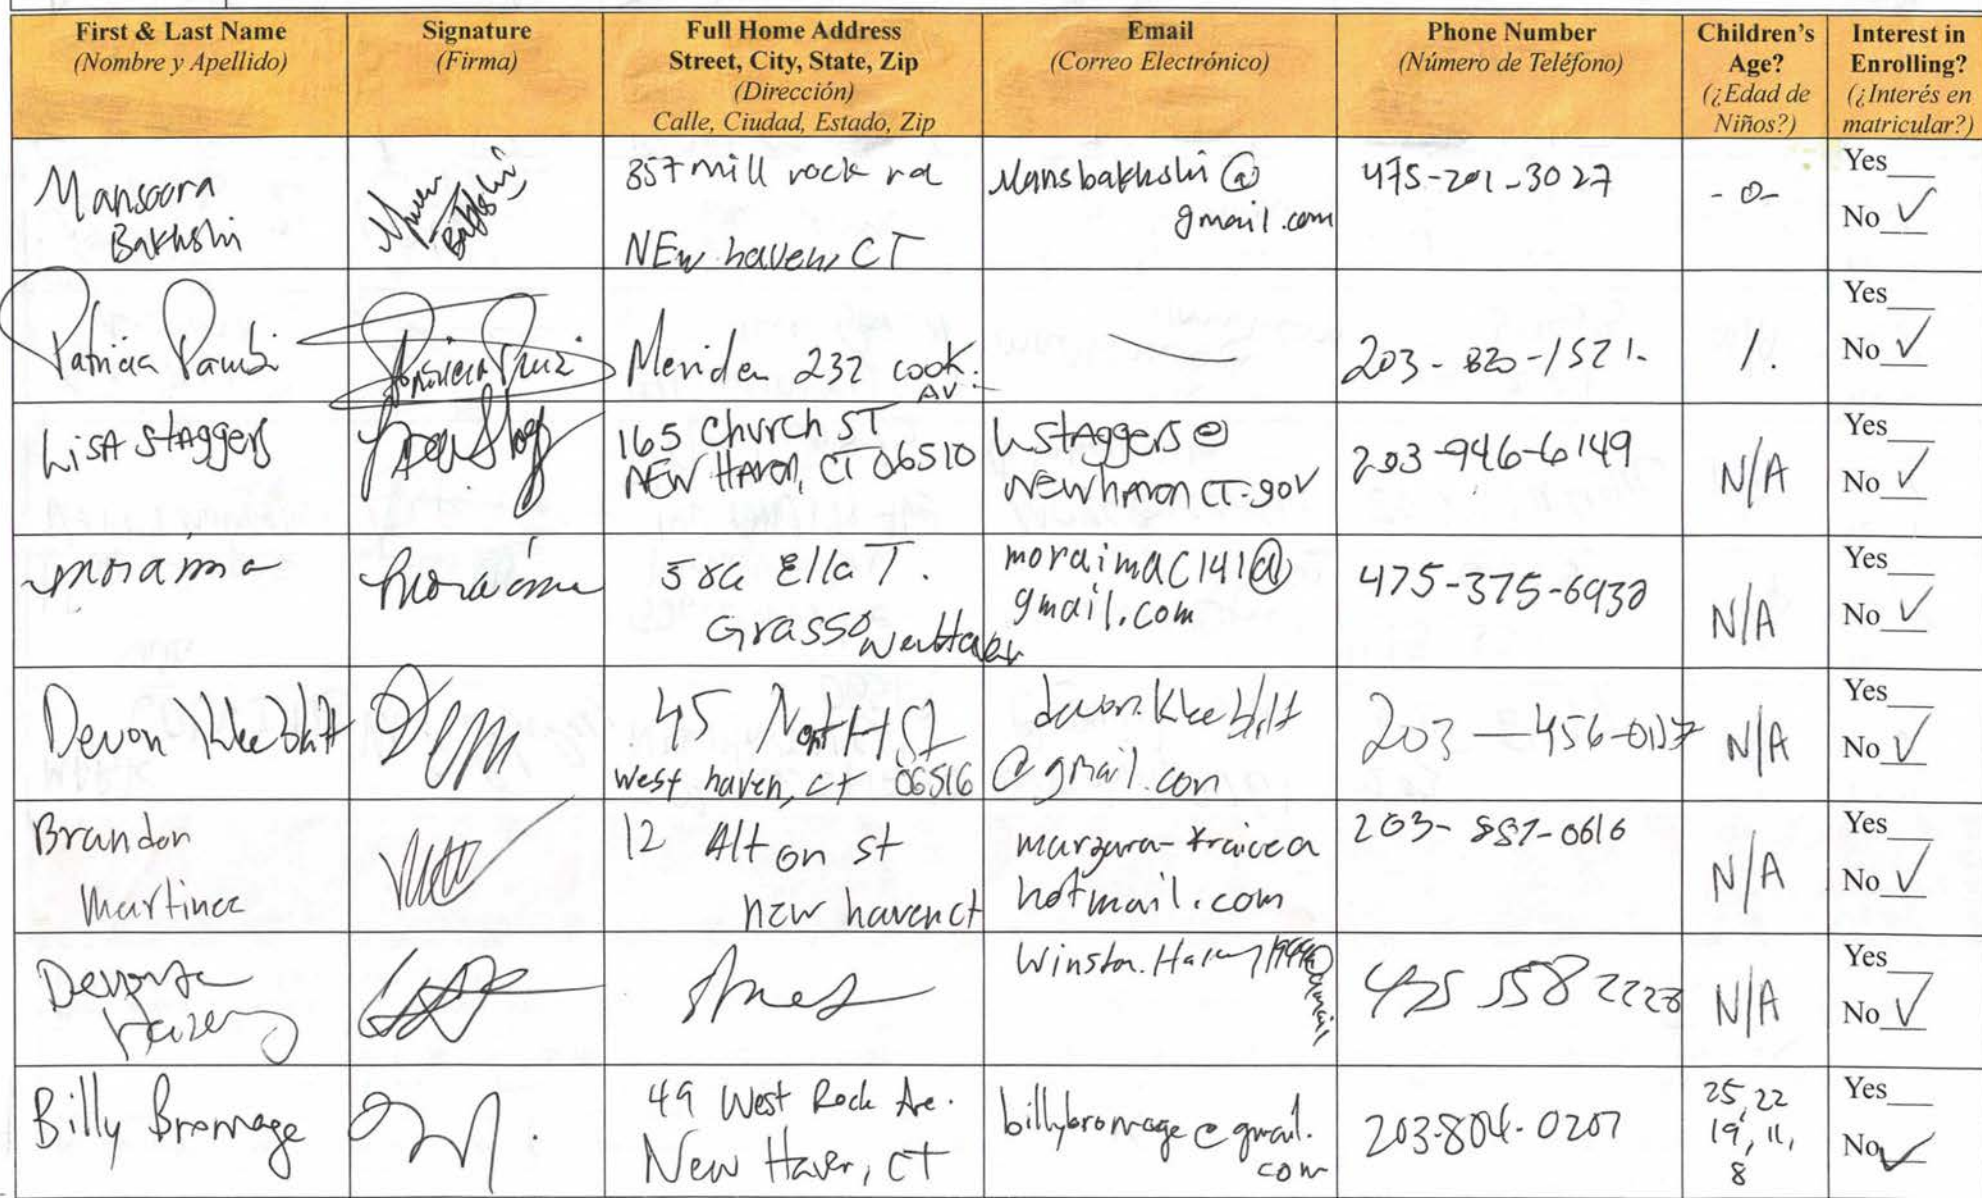 First & Last Name
(Nombre y Apellido)
Signature
(Firma)
Full Home Address
Street, City, State, Zip
(Dirección)
Calle, Ciudad, Estado, Zip
Email
(Correo Electrónico)
Phone Number
(Número de Teléfono)
Children's
Age?
(¿Edad de
Niños?)
Interest in
Enrolling?
(¿Interés en
matricular?)
Mansoora
Bakhshi
Bakhshi
357 mill rock rd
NEw haven, CT
Mansbakhshi@
gmail.com
475-201-3027
-0-
Yes
No ✓
Patricia
Patricia
Meriden 232 cook.
AV
203-820-1521.
Yes
No ✓
LisA StAggers
165 Church ST
NEW HAVEN, CT 06510
LStAggers@
NEWHAVENCT.gov
203-946-6149
N/A
Yes
No ✓
moraima
moraima
Ella T.
Grasso New Haven
moraimac141@
gmail.com
475-375-6930
N/A
Yes
No ✓
Devon Kleeblatt
45 North St
West haven, ct 06516
devon.kleeblatt
@gmail.com
203-456-
N/A
Yes
No ✓
Brandon
Martinez
12 Alton st
new haven ct
hotmail.com
203-887-0616
N/A
Yes
No ✓
Devonte
Winston.
475 558 2228
N/A
Yes
No ✓
Billy Bromage
49 West Rock Ave.
New Haven, CT
billybromage@gmail.
com
203-804-0207
25, 22
19, 11,
8
Yes
No ✓